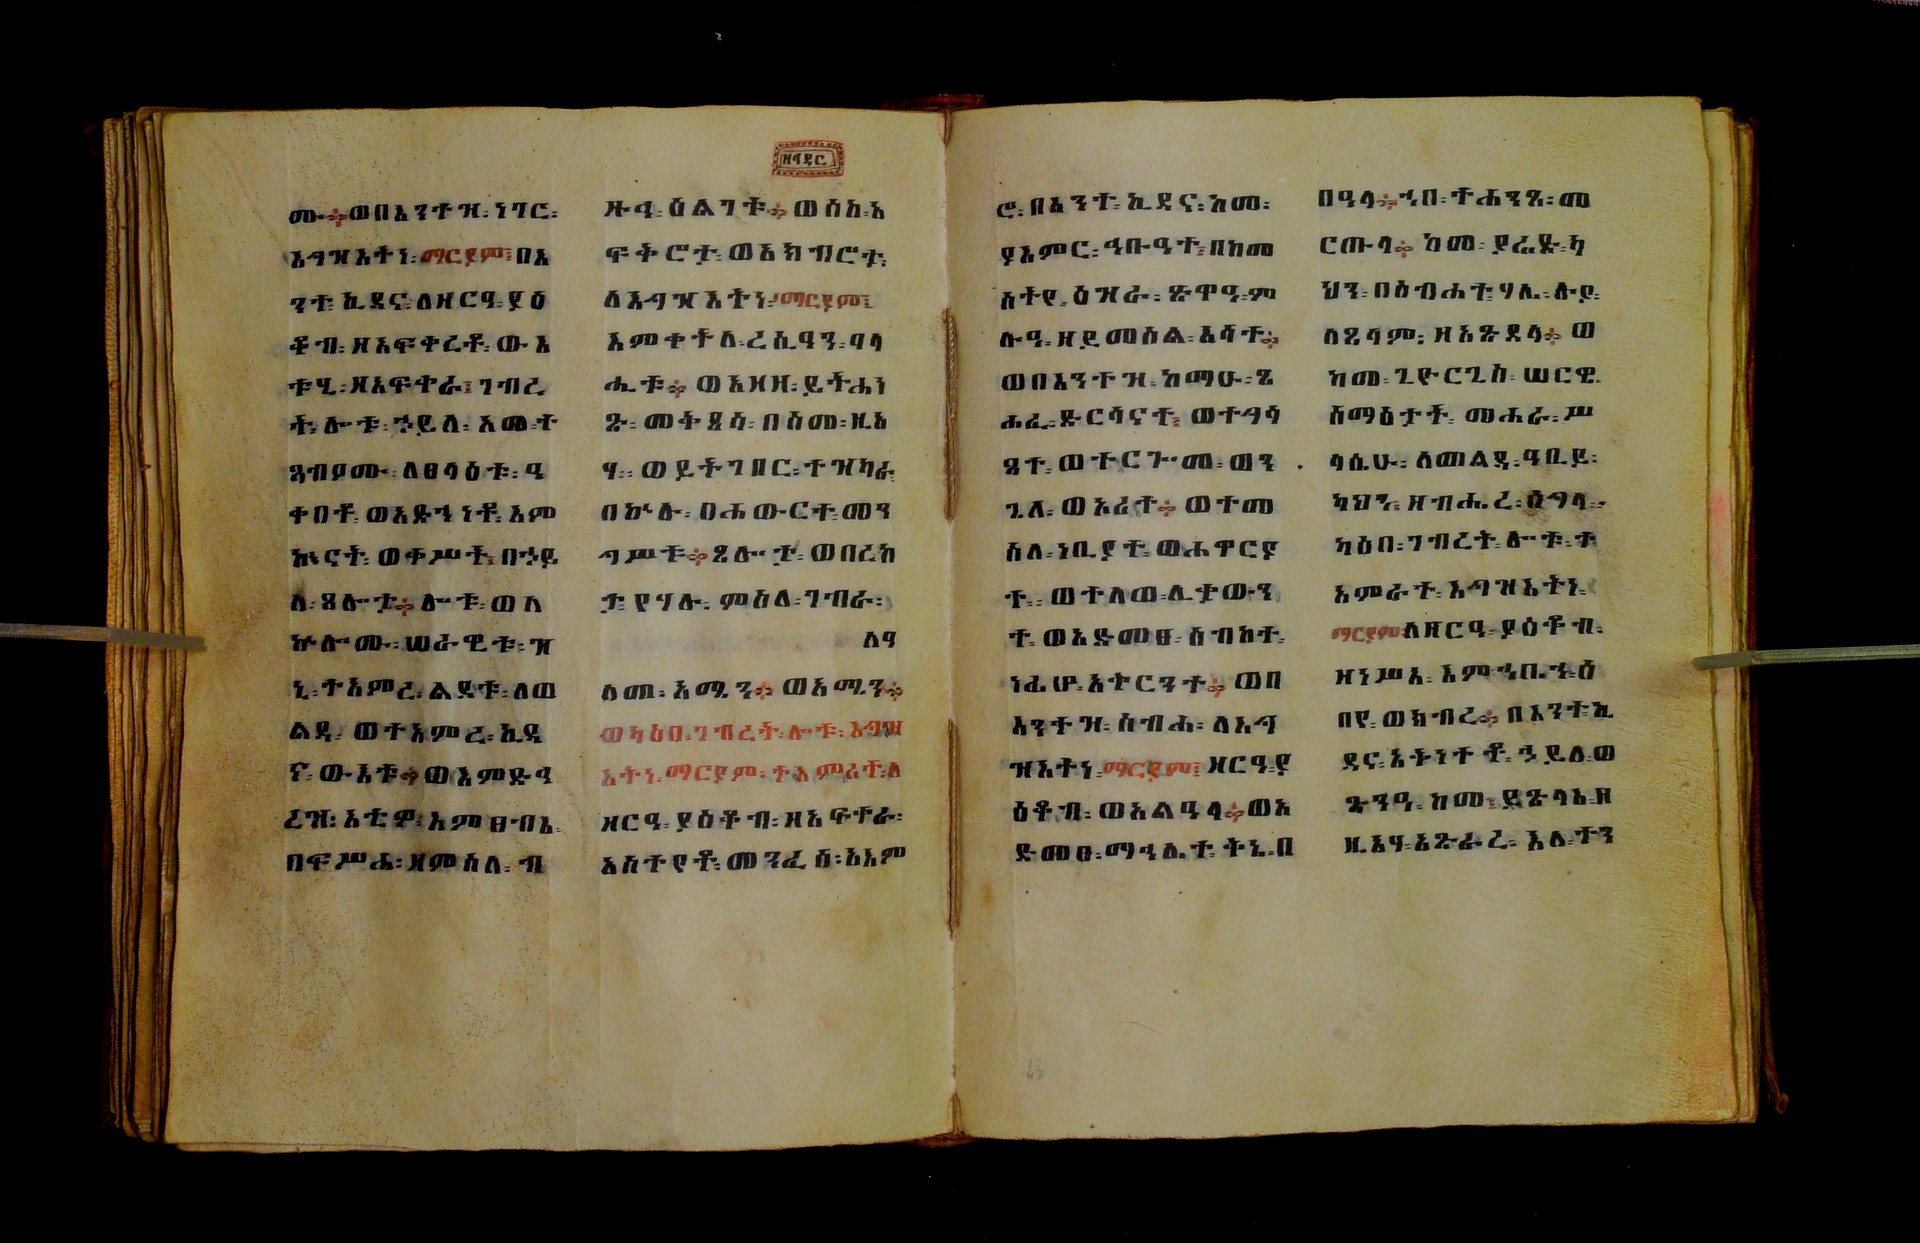 ዘኅዳር
ሙ፨ወበእንተዝ፡ነገር፡
እግዝእትነ፡ማርያም፤በእ
ንተ፡ኪዳና፡ለዘርዓ፡ያዕ
ቆብ፡ዘአፍቀረቶ፡ውእ
ቱሂ፡ዘአፍቀራ፤ገብረ
ት፡ሎቱ፡ኃይለ፡አመ፡ተ
ጻብዖሙ፡ለፀላዕቱ፡ዓ
ቀበቶ፡ወአድኅነቶ፡እም
ኵናት፡ወቀሥት፡በኃይ
ለ፡ጸሎታ፨ሎቱ፡ወለ
ኵሎሙ፡ሠራዊቱ፡ዝ
ኒ፡ተአምረ፡ልደቱ፡ለወ
ልዳ፡ወተአምረ፡ኪዳ
ና፡ውእቱ፨ወእምድኅ
ረዝ፡አቲዎ፡እምፀብእ፡
በፍሥሐ፡ዘምስለ፡ብ
ዙኅ፡ዕልገቱ፨ወሰከ፡አ
ፍቅሮታ፡ወአክብሮታ፡
ለእግዝእትነ፡ማርያም፤
እምቀተለ፡ረሲዓን፡ባላ
ሒቱ፨ወአዘዘ፡ይትሐነ
ጽ፡መቅደስ፡በስመ፡ዚአ
ሃ፡ወይትገበር፡ተዝካራ
በኵሉ፡በሐውርተ፡መን
ግሥቱ፨ጸሎታ፡ወበረከ
ታ፡የሃሉ፡ምስለ፡ገብራ፡
ለዓ
ለመ፡አሜን፨ወአሜን፨
ወካዕበ፡ገብረት፡ሎቱ፡እግዝ
እትነ፡ማርያም፡ተአምረተ፡ለ
ዘርዓ፡ያዕቆብ፡ዘአፍቀራ፡
አስተየቶ፡መንፈሰ፡አእም
ሮ፡በእንተ፡ኪዳና፡አመ፡
ያአምር፡ኅቡዓተ፡በከመ
አስተየ፡ዕዝራ፡ጽዋዓ፡ም
ሉዓ፡ዘይመስል፡እሳተ፨
ወበእንተዝ፡ከማሁ፡ጸ
ሐፈ፡ድርሳናተ፡ወተግሳ
ጸተ፡ወተርጐመ፡ወን
ጌለ፡ወኦሪተ፨ወተመ
ሰለ፡ነቢያተ፡ወሐዋርያ
ተ፡ወተለወ፡ሊቃውን
ተ፡ወአድመፀ፡ስብከተ፡
ነፊሆ፡አቅርንተ፨ወበ
እንተዝ፡ስብሐ፡ለእግ
ዝእትነ፡ማርያም፤ዘርዓ፡ያ
ዕቆብ፡ወአልዓላ፨ወአ
ድመፀ፡ማኅሌተ፡ትኒ፡በ
በዓላ፨ኀበ፡ተሐንጻ፡መ
ርጡላ፨ከመ፡ያፈድ፡ካ
ህን፡በስብሐት፡ሃሌ፡ሉያ፡
ለጄላም፡ዘአጽደላ፨ወ
ከመ፡ጊዮርጊስ፡ሠርዊ፡
ሰማዕታት፡መሐራ፡ሥ
ላሴሁ፡ለወልዳ፡ዓቢይ፡
ካህን፡ዘብሔረ፡ዕግላ፡
ካዕበ፡ገብረት፡ሎቱ፡ተ
አምራተ፡እግዝእትነ፡
ማርያም፡ለዘርዓ፡ያዕቆብ፡
ዘነሥአ፡እምኀቤ፡ኄዕ
በየ፡ወክብረ፨በእንተ፡ኪ
ዳና፡አቅነተቶ፡ኃይለ፡ወ
ጽንዓ፡ከመ፡ይጽላእ፡ዘ
ዚአሃ፡አጽራረ፡እለ፡ተን